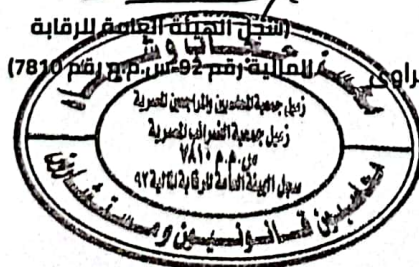 (سجل الهيئة العامة للرقابة
راوى للمالية رقم 92-س.م.م رقم 7810)
زميل جمعية المحاسبين والمراجعين المصرية
زميل جمعية الضرائب المصرية
س.م.م ٧٨١٠
سجل الهيئة العامة للرقابة المالية ٩٢
محاسبون قانونيون ومستشارون